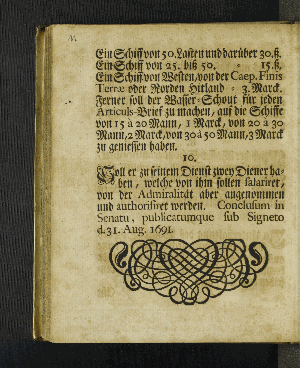 Ein Schiff von 50. Lasten und darüber 30.ß.
Ein Schiff von 25. biß 50. - 15.ß.
Ein Schiff von Westen, von der Caep. Finis
Terræ oder Norden Hitland - 3. Marck.
Ferner soll der Wasser-Schout für jeden
Articuls-Brief zu machen, auf die Schiffe
von 15 à 20 Mann, 1 Marck, von 20 à 30
Mann, 2 Marck, von 30 à 50 Mann, 3 Marck
zu geniessen haben.
10.
Soll er zu seinem Dienst zwey Diener ha-
ben, welche von ihm sollen salariret,
von der Admiralität aber angenommen
und authorisiret werden. Conclusum in
Senatu, publicatumque sub Signeto
d. 31. Aug. 1691.